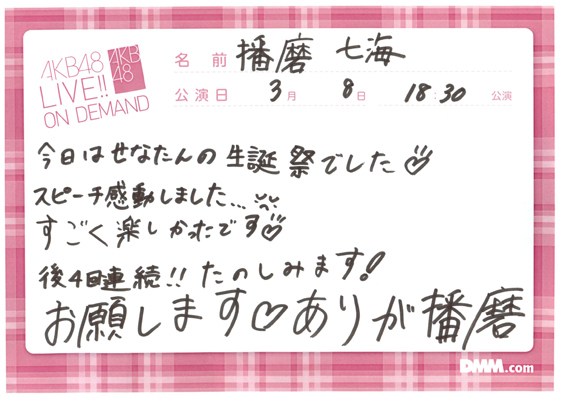 AKB48
LIVE!!
ON DEMAND
AKB
48
名前 播磨 七海
公演日 3月 8日 18:30 公演
今日はせなたんの生誕祭でした♡
スピーチ感動しました...
すごく楽しかったです♡
後4回連続!! たのしみます!
お願します♡ありが播磨
DMM.com